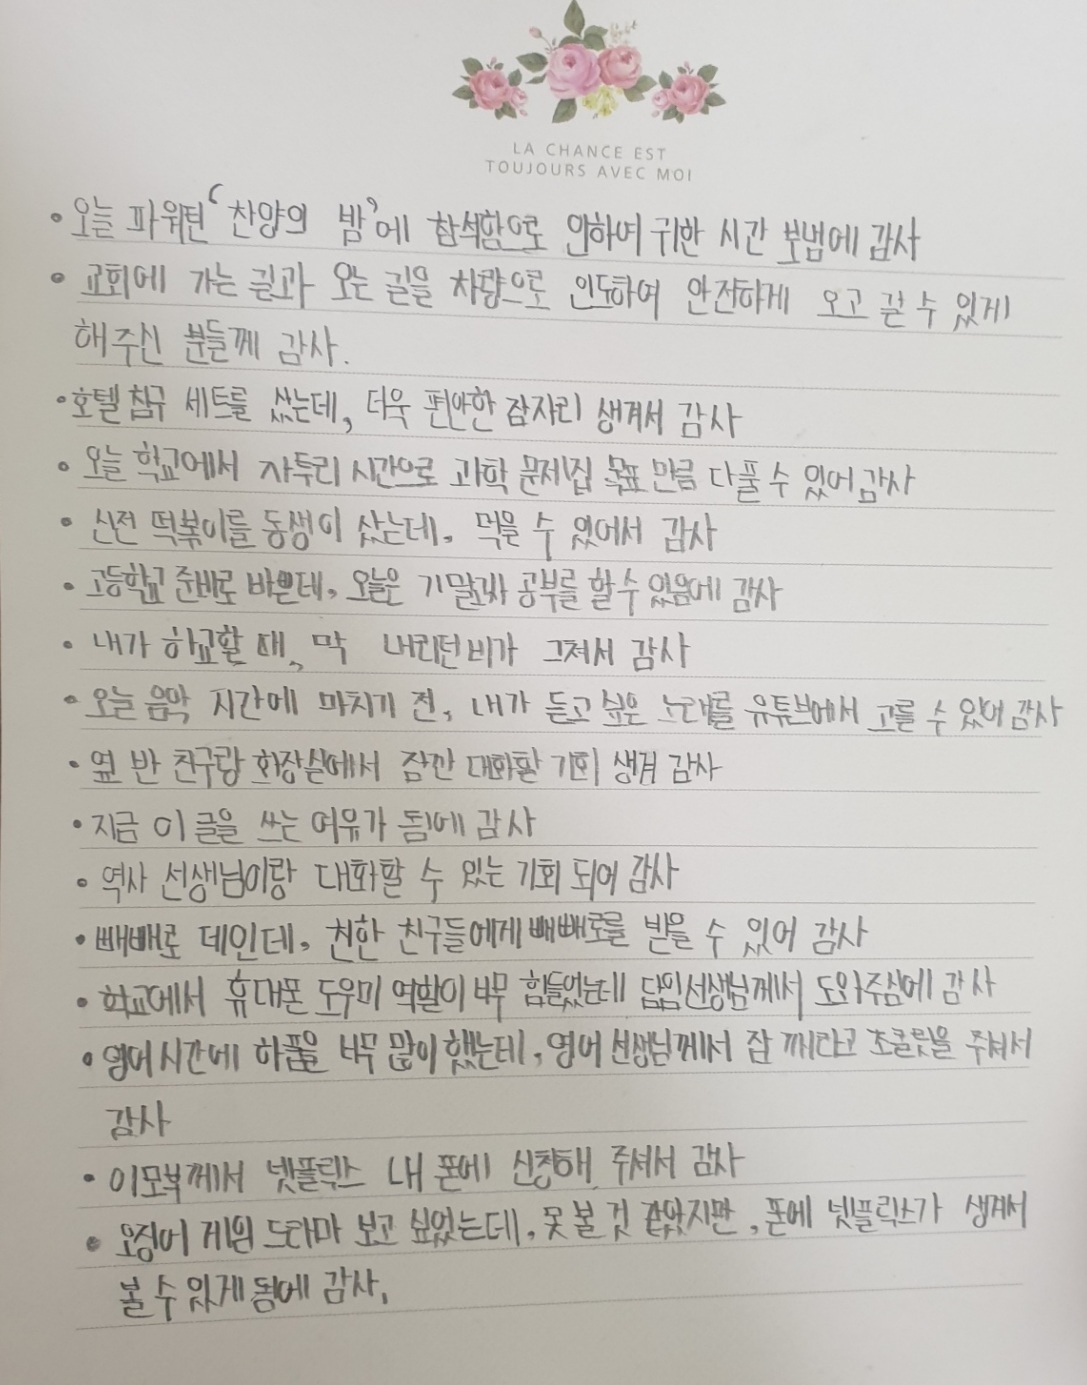 LA CHANCE EST
TOUJOURS AVEC MOI
• 오늘 파워틴 '찬양의 밤'에 참석함으로 인하여 귀한 시간 보냄에 감사
• 교회에 가는 길과 오는 길을 차량으로 인도하여 안전하게 오고 갈 수 있게
해주신 분들께 감사.
• 호텔 침구 세트를 샀는데, 더욱 편안한 잠자리 생겨서 감사
• 오늘 학교에서 자투리 시간으로 과학 문제집 목표 만큼 다 풀 수 있어 감사
• 신전 떡볶이를 동생이 샀는데, 먹을 수 있어서 감사
• 고등학교 준비로 바쁜데, 오늘은 기말고사 공부를 할 수 있음에 감사
• 내가 하교할 때, 막 내리던 비가 그쳐서 감사
• 오늘 음악 시간에 마치기 전, 내가 듣고 싶은 노래를 유튜브에서 고를 수 있어 감사
• 옆 반 친구랑 화장실에서 잠깐 대화할 기회 생겨 감사
• 지금 이 글을 쓰는 여유가 됨에 감사
• 역사 선생님이랑 대화할 수 있는 기회 되어 감사
• 빼빼로 데인데, 친한 친구들에게 빼빼로를 받을 수 있어 감사
• 학교에서 휴대폰 도우미 역할이 너무 힘들었는데 담임선생님께서 도와주심에 감사
• 영어 시간에 하품을 너무 많이 했는데, 영어 선생님께서 잠 깨라고 초콜릿을 주셔서
감사
• 이모부께서 넷플릭스 내 폰에 신청해 주셔서 감사
• 오징어 게임 드라마 보고 싶었는데, 못 볼 것 같았지만, 폰에 넷플릭스가 생겨서
볼 수 있게 됨에 감사.